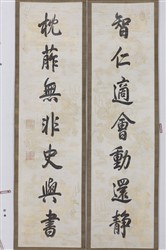 智仁適會動還靜
枕葄無非史與書